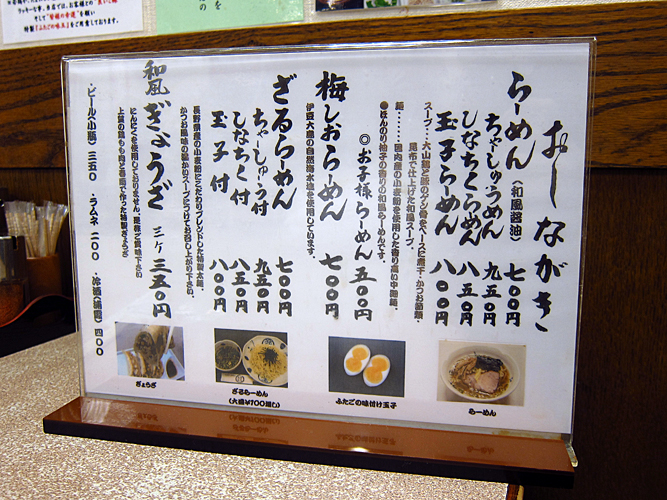 おしながき
らーめん(和風醤油) 七〇〇円
ちゃしゅうめん 九五〇円
しなちくらーめん 八五〇円
玉子らーめん 八〇〇円
スープ・・大山鶏と豚のゲンコツ骨をベースに煮干・かつお節類・
昆布で仕上げた和風スープ。
麺・・・・・国内産の小麦粉を使用した香り高い中細麺。
●ほんのり柚子の香りの和風らーめんです。
◎お子様らーめん 五〇〇円
梅しおらーめん 七〇〇円
伊豆大島の自然海水塩を使用しています。
ざるらーめん 七〇〇円
ちゃーしゅう付 九五〇円
しなちく付 八五〇円
玉子付 八〇〇円
長野県産の小麦粉にこだわりブレンドした特製太麺。
かつお風味の温かいスープにつけてお召し上がり下さい。
和風ぎょうざ 三ヶ 三五〇円
にんにくを使用しておりません。
上質の鶏もも肉と
・ビール(小瓶) 三五〇 ・ラムネ 二〇〇 ・冷酒 四〇〇
ぎょうざ
ざるらーめん
(大盛¥100増し)
ふたごの味付け玉子
らーめん